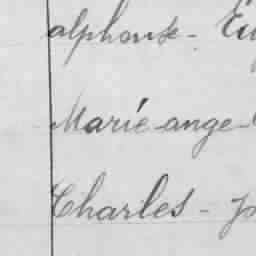 alphonse -
Marie-ange -
Charles -